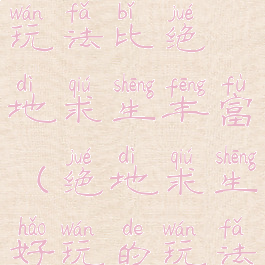 wán fǎ bǐ jué
玩法比绝
dì qiú shēng fēng fù
地求生丰富
jué dì qiú shēng
（绝地求生
hǎo wán de wán fǎ
好玩的玩法